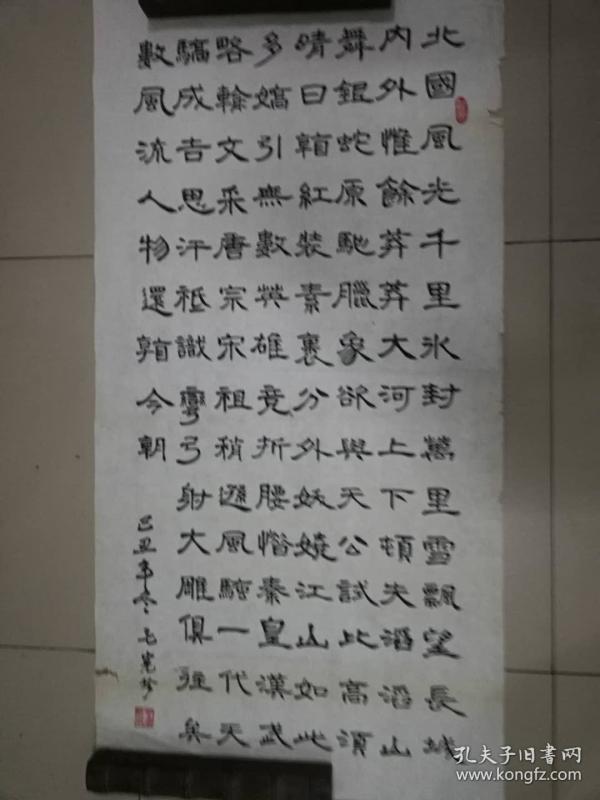 北國風光千里氷封萬里雪飄望長城
内外惟餘莽莽大河上下頓失滔滔山
舞銀蛇原馳臘象欲與天公試比高須
晴日看紅裝素裹分外妖嬈江山如此
多嬌引無數英雄竞折腰惜秦皇漢武
略輸文采唐宗宋祖稍遜風騷一代天
驕成吉思汗祗識彎弓射大雕俱往矣
數風流人物還看今朝
己丑年冬
孔夫子旧書网
www.kongfz.com